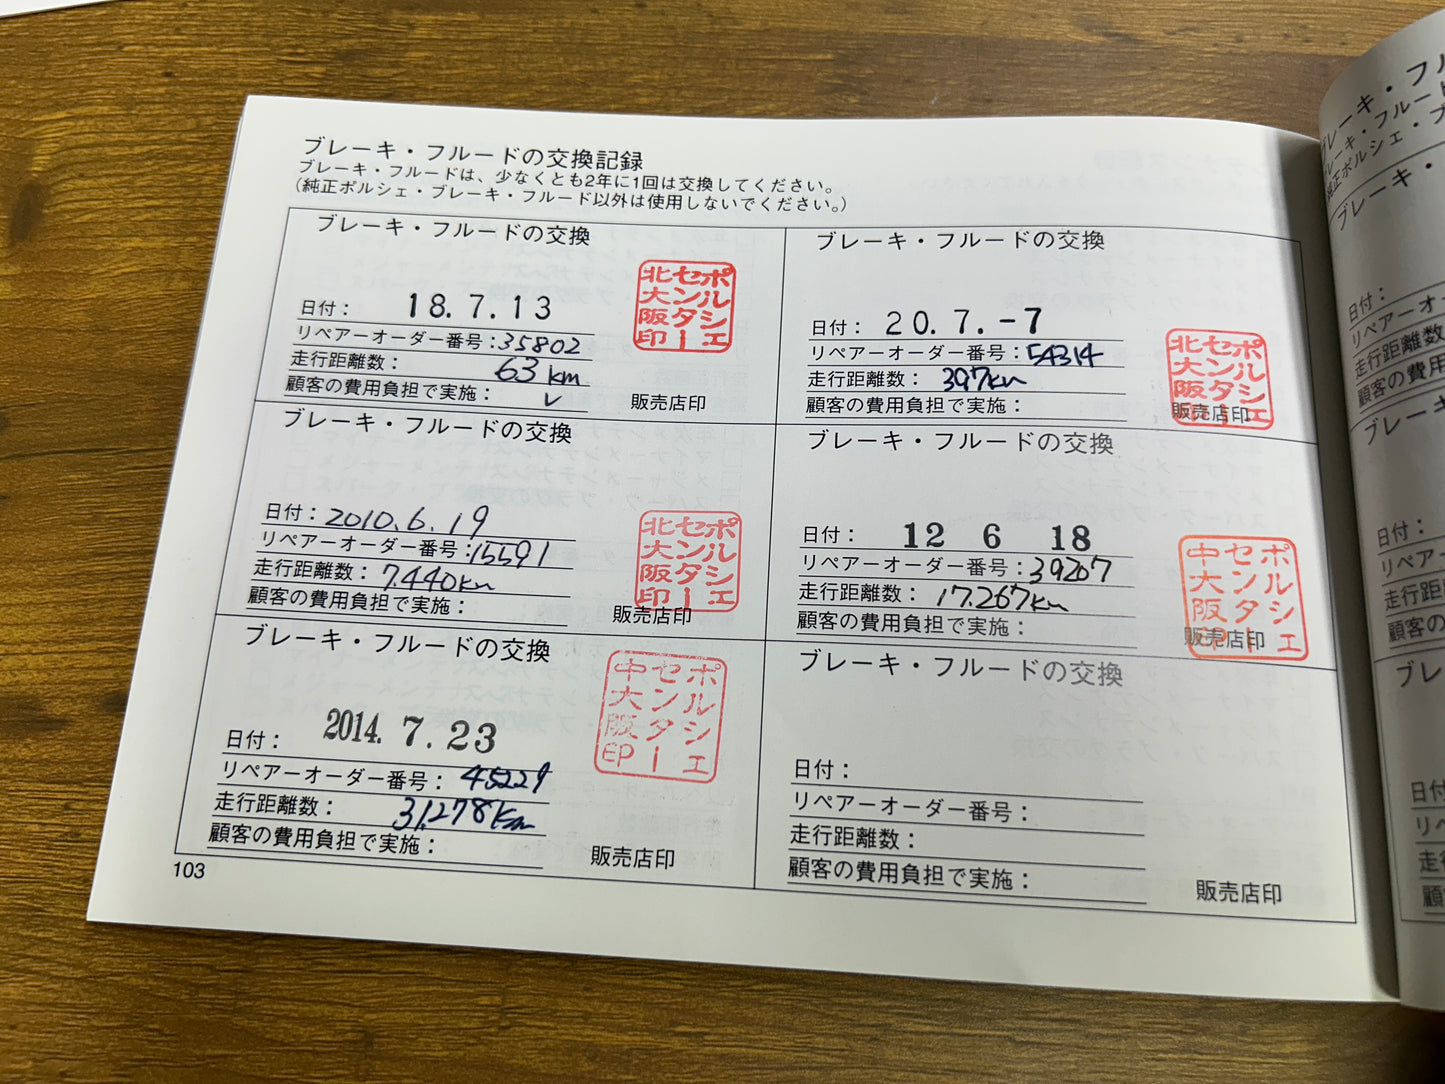 ブレーキ・フルードの交換記録
ブレーキ・フルードは、少なくとも2年に1回は交換してください。
（純正ポルシェ・ブレーキ・フルード以外は使用しないでください。）
ブレーキ・フルードの交換
日付： 18.7.13
リペアーオーダー番号：35802
走行距離数： 63km
顧客の費用負担で実施： v
販売店印
ポルシェ
センター
北大阪印
ブレーキ・フルードの交換
日付： 20.7.-7
リペアーオーダー番号：54314
走行距離数： 397km
顧客の費用負担で実施：
販売店印
ポルシェ
センター
北大阪印
ブレーキ・フルードの交換
日付：2010.6.19
リペアーオーダー番号：15591
走行距離数：7.440km
顧客の費用負担で実施：
販売店印
ポルシェ
センター
北大阪印
ブレーキ・フルードの交換
日付： 12 6 18
リペアーオーダー番号：39207
走行距離数： 17.267km
顧客の費用負担で実施：
販売店印
ポルシェ
センター
中大阪印
ブレーキ・フルードの交換
日付： 2014.7.23
リペアーオーダー番号： 45229
走行距離数： 31,278km
顧客の費用負担で実施：
販売店印
ポルシェ
センター
中大阪印
ブレーキ・フルードの交換
日付：
リペアーオーダー番号：
走行距離数：
顧客の費用負担で実施：
販売店印
103
ブレーキ・フル
ブレーキ・フルード
純正ポルシェ・ブ
ブレーキ・
日付：
リペアーオーダ
走行距離数
顧客の費用
ブレーキ
日付：
リペアー
走行距
顧客の
ブレ
日付